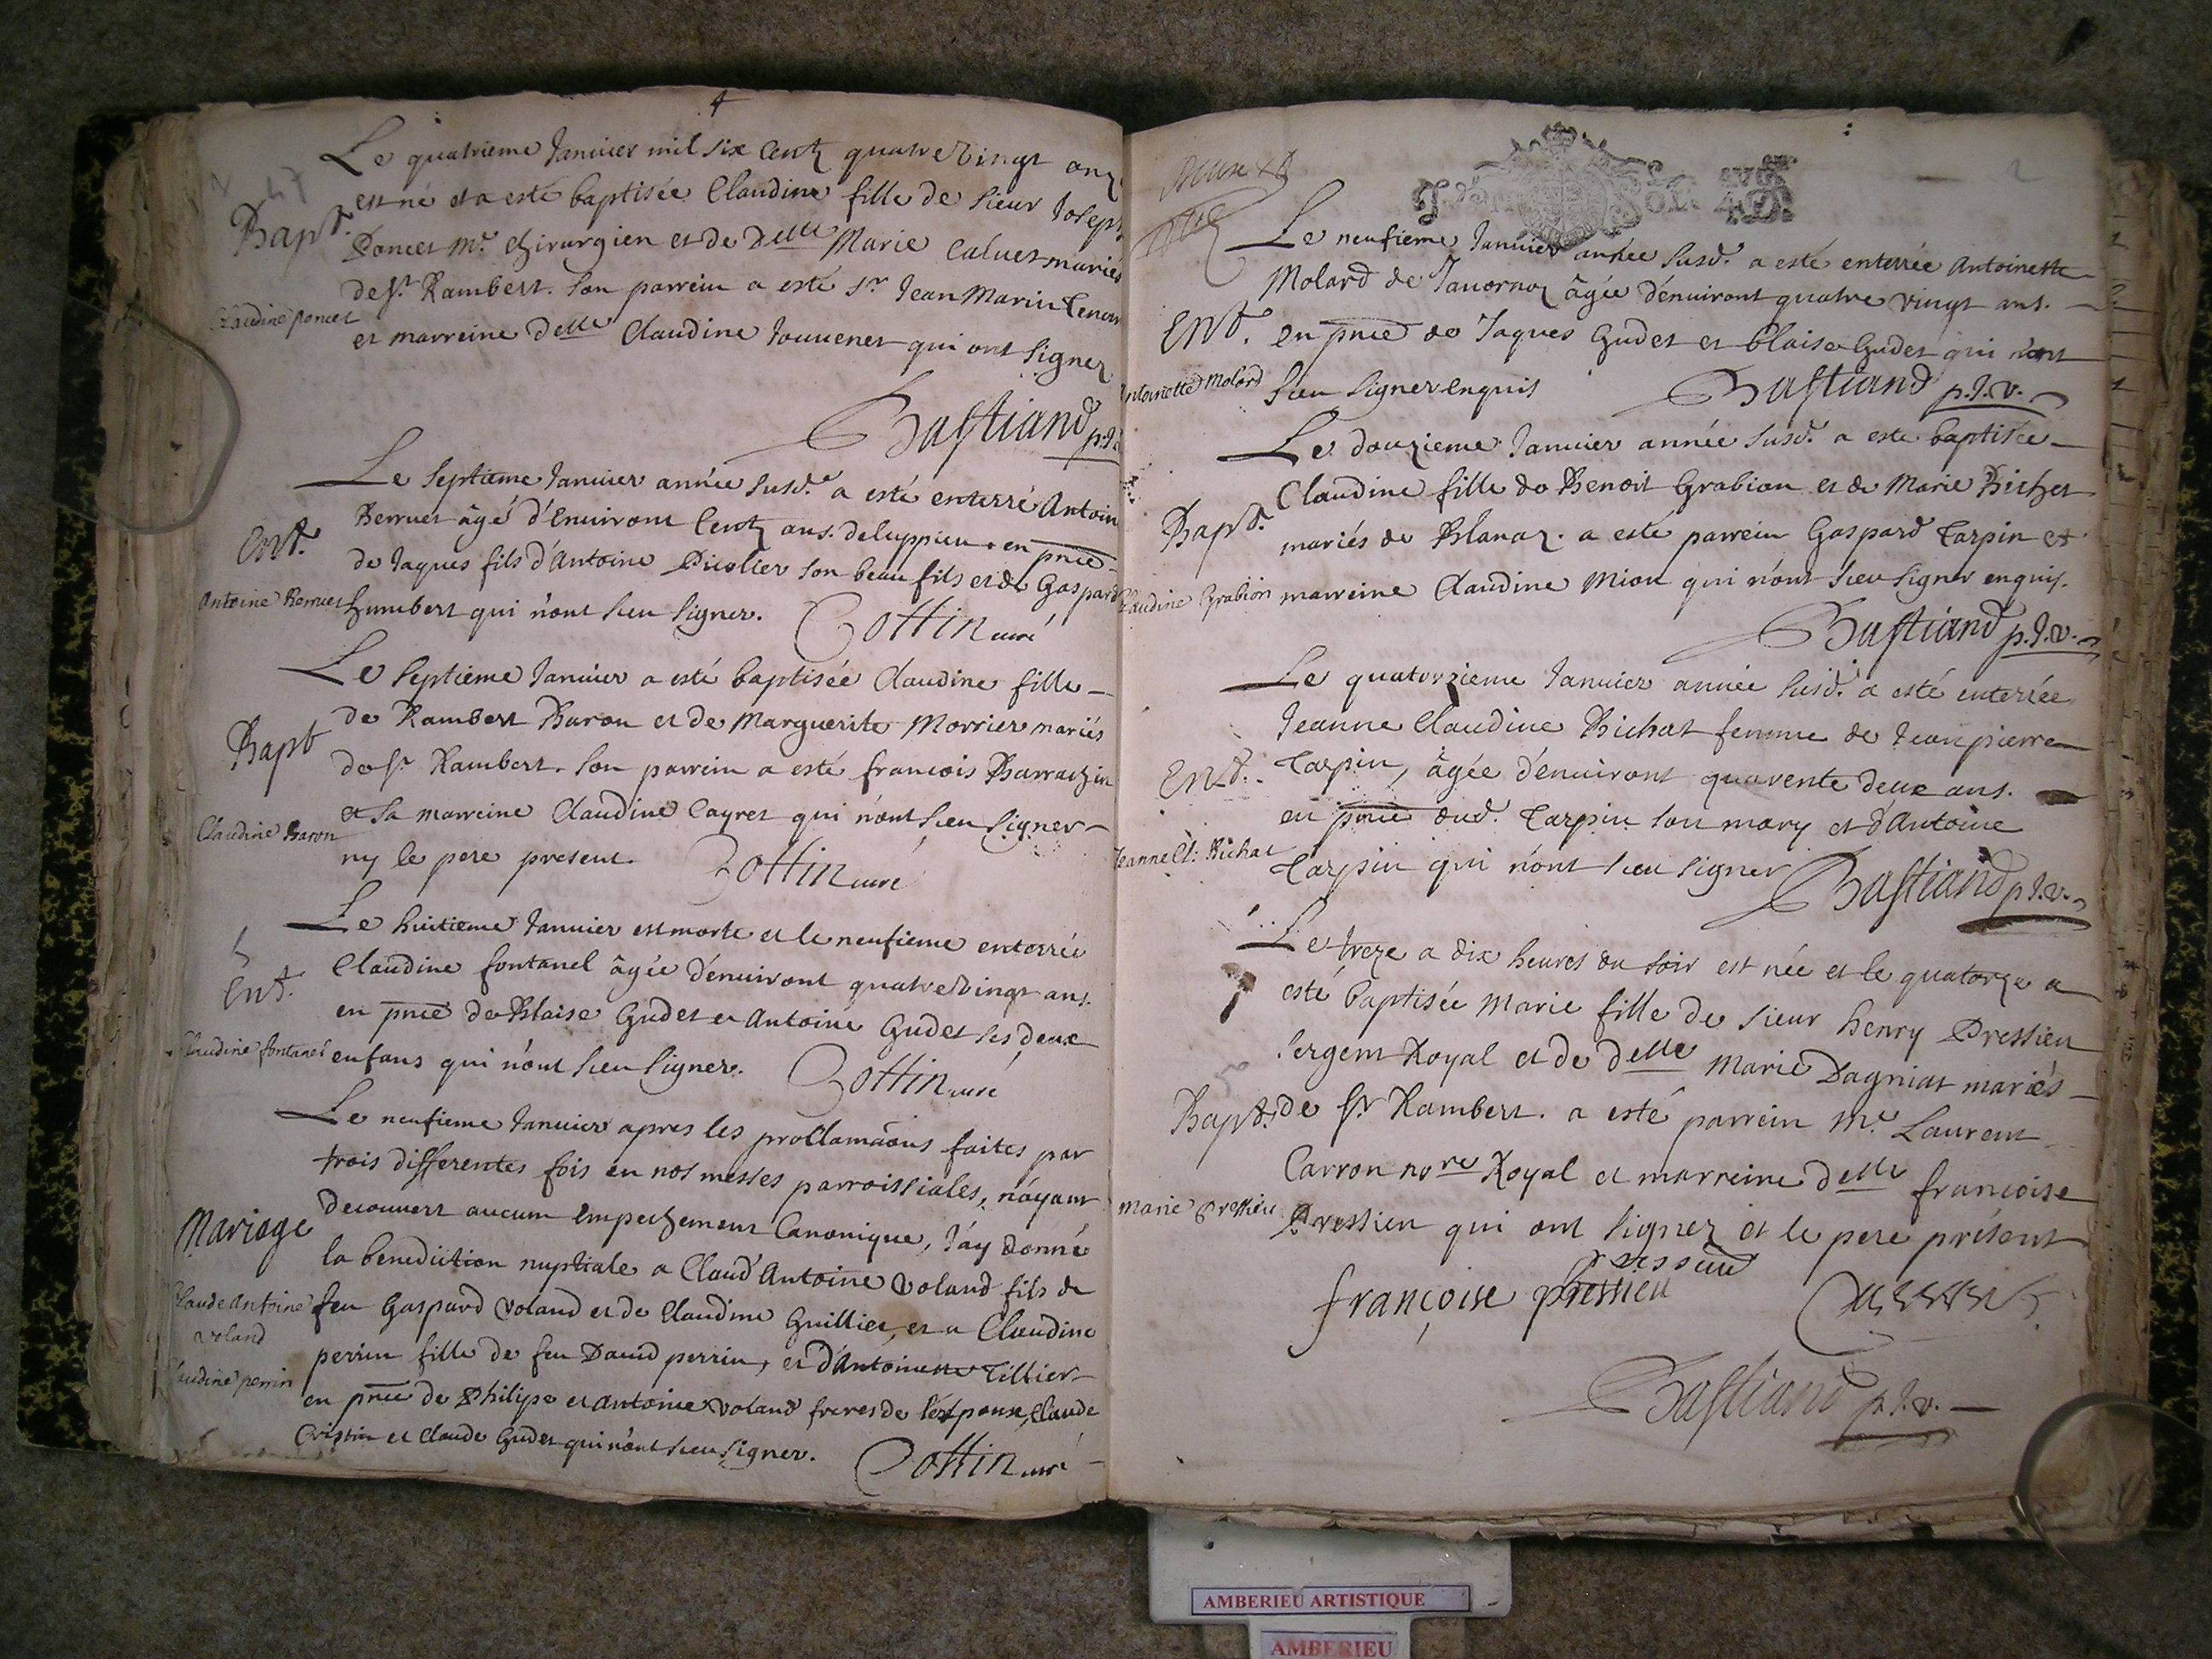 4
Le quatrieme Januier mil six Centz quatre Vingt onz
est né et a esté baptisée Claudine fille de sieur Joseph
Bapt.
Poncet Me. Chirurgien et de Delle Marie Caluet mariés
de St. Rambert. son parrein a esté sr Jean Marin
Claudine poncet
et marreine delle Claudine Jouuenet qui ont signez
Bastiand p.J.v.
Le Septieme Januier année susd. a esté enterré Antoin
Berruet âgé d'Enuiront Centz ans. de luppieu. en pnce
Ent.
de Jaques fils d'Antoine Diuolier son beau fils et de Gaspard
Antoine Berruet
humbert qui n'ont sceu signer.
Cottin curé
Le Septieme Januier a esté baptisée Claudine fille
de Rambert Baron et de Marguerite Morrier mariés
Bapt
de St Rambert. son parrein a esté francois Barrachin
et sa marreine Claudine Cayret qui n'ont sceu signer
Claudine Baron
ny le pere present.
Cottin curé
Le huitieme Januier est morte et le neufieme enterrée
Claudine fontanel âgée d'enuiront quatre Vingt ans.
Ent.
en pnce de Blaise Gudet et Antoine Gudet ses deux
Claudine fontanel
enfans qui n'ont sceu signer.
Cottin curé
Le neufieme Januier apres les procllamaons faites par
trois differentes fois en nos messes parroissiales, n'ayant
decouuert aucum Empechement Canonique, J'ay donné
Mariage
la benediction nuptiale a Claud' Antoine Voland fils de
Claude Antoine
feu Gaspard Voland et de Claudine Guillier, et a Claudine
voland
perrin fille de feu Dauid perrin, et d'Antoinette Tillier
Claudine perrin
en pnce de Philipe et antoine Voland freres de l'espouse, Claude
Cristin et Claude Gudet qui n'ont sceu signer.
Cottin curé
2
Le neufieme Januier année susd. a esté enterrée Antoinette
Molard de Jauornoz âgée d'enuiront quatre vingt ans.
Ent.
en pnce de Jaques Gudet et blaise Gudet qui n'ont
Antoinette Molard
sceu signer enquis
Bastiand p.J.v.
Le douzieme Januier année susd. a esté baptisée
Claudine fille de Benoit Grabion et de Marie Bichet
Bapt.
mariés de Blanaz. a esté parrein Gaspard Tarpin et
Claudine Grabion
marreine Claudine Miou qui n'ont sceu signer enquis.
Bastiand p.J.v.
Le quatorzieme Januier année susd. a esté enterrée
Jeanne Claudine Bichat femme de Jean pierre
Ent.
Tarpin, âgée d'enuiront quarente deux ans.
en pnce dud. Tarpin son mary et d'Antoine
Jeanne Cl: Bichat
Tarpin qui n'ont sceu signer
Bastiand p.J.v.
Le treze a dix heures du soir est née et le quatorze a
esté baptisée Marie fille de sieur henry Pressieu
sergent Royal et de delle Marie Dagniat mariés
Bapt.
de St Rambert. a esté parrein Me. Laurent
Carron nore Royal et marreine delle francoise
Marie Pressieu
Pressieu qui ont signez et le pere présent
Pressieu
françoise pressieu
Bastiand p.J.v.
AMBERIEU ARTISTIQUE
AMBERIEU